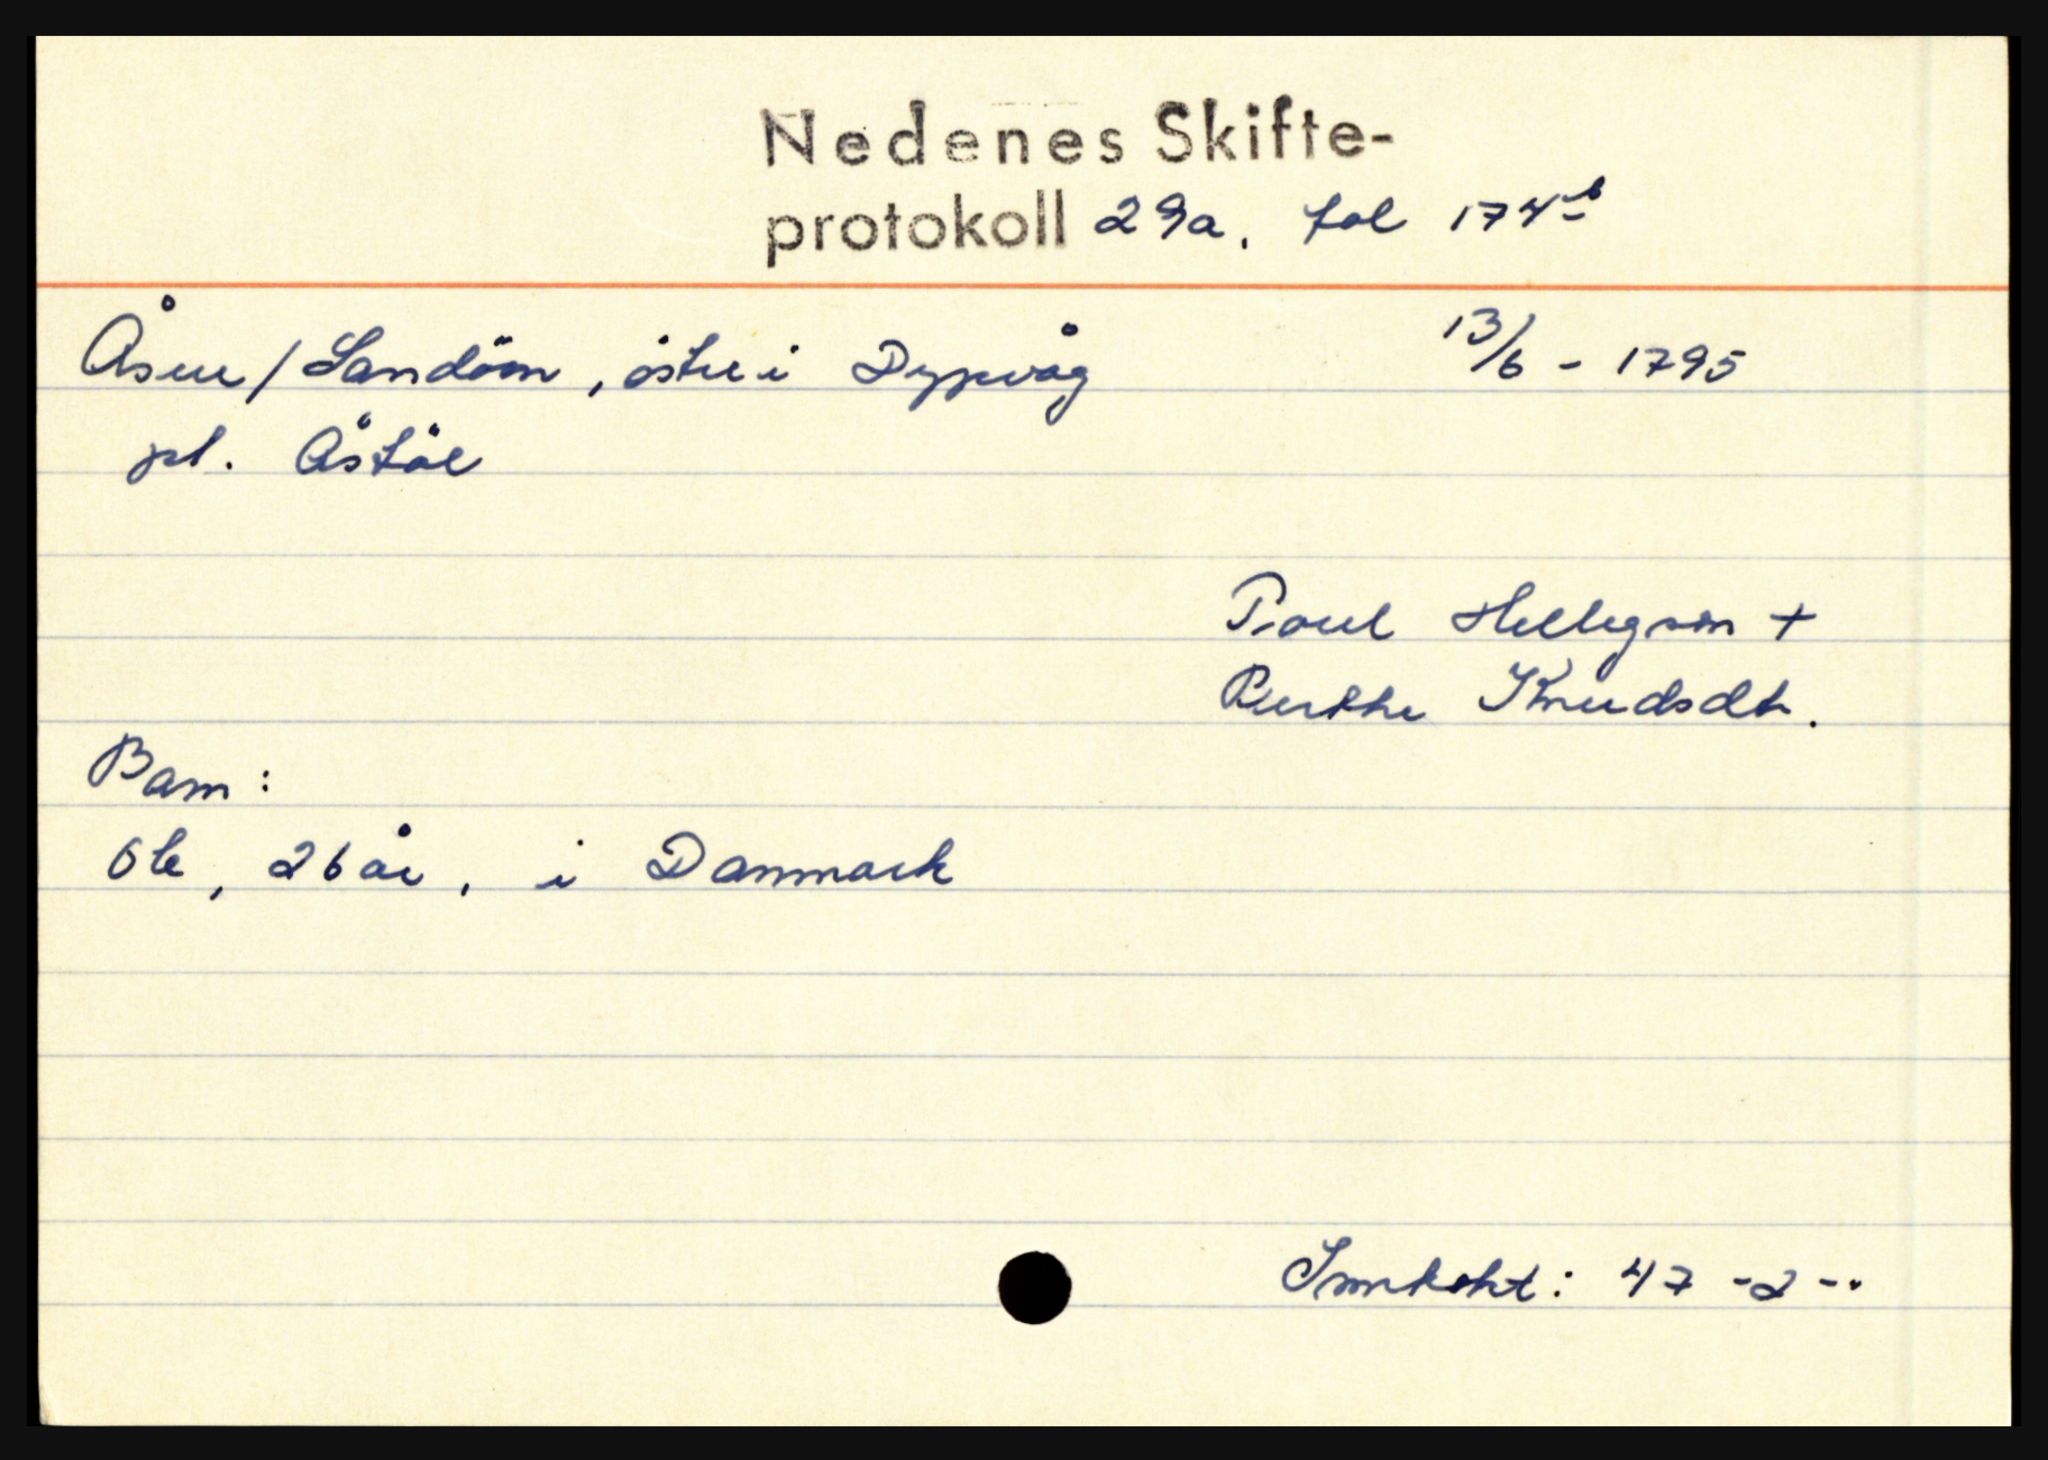 Nedenes Skifte-
protokoll 29a, fol 174b
Åsen / Sandöen, östre i Dypvåg 13/6 - 1795
pl. Östöl
Poul Hellegsøn +
Knudsdtr.
Barn:
Ole, 26 år, i Danmark
47 -2-"